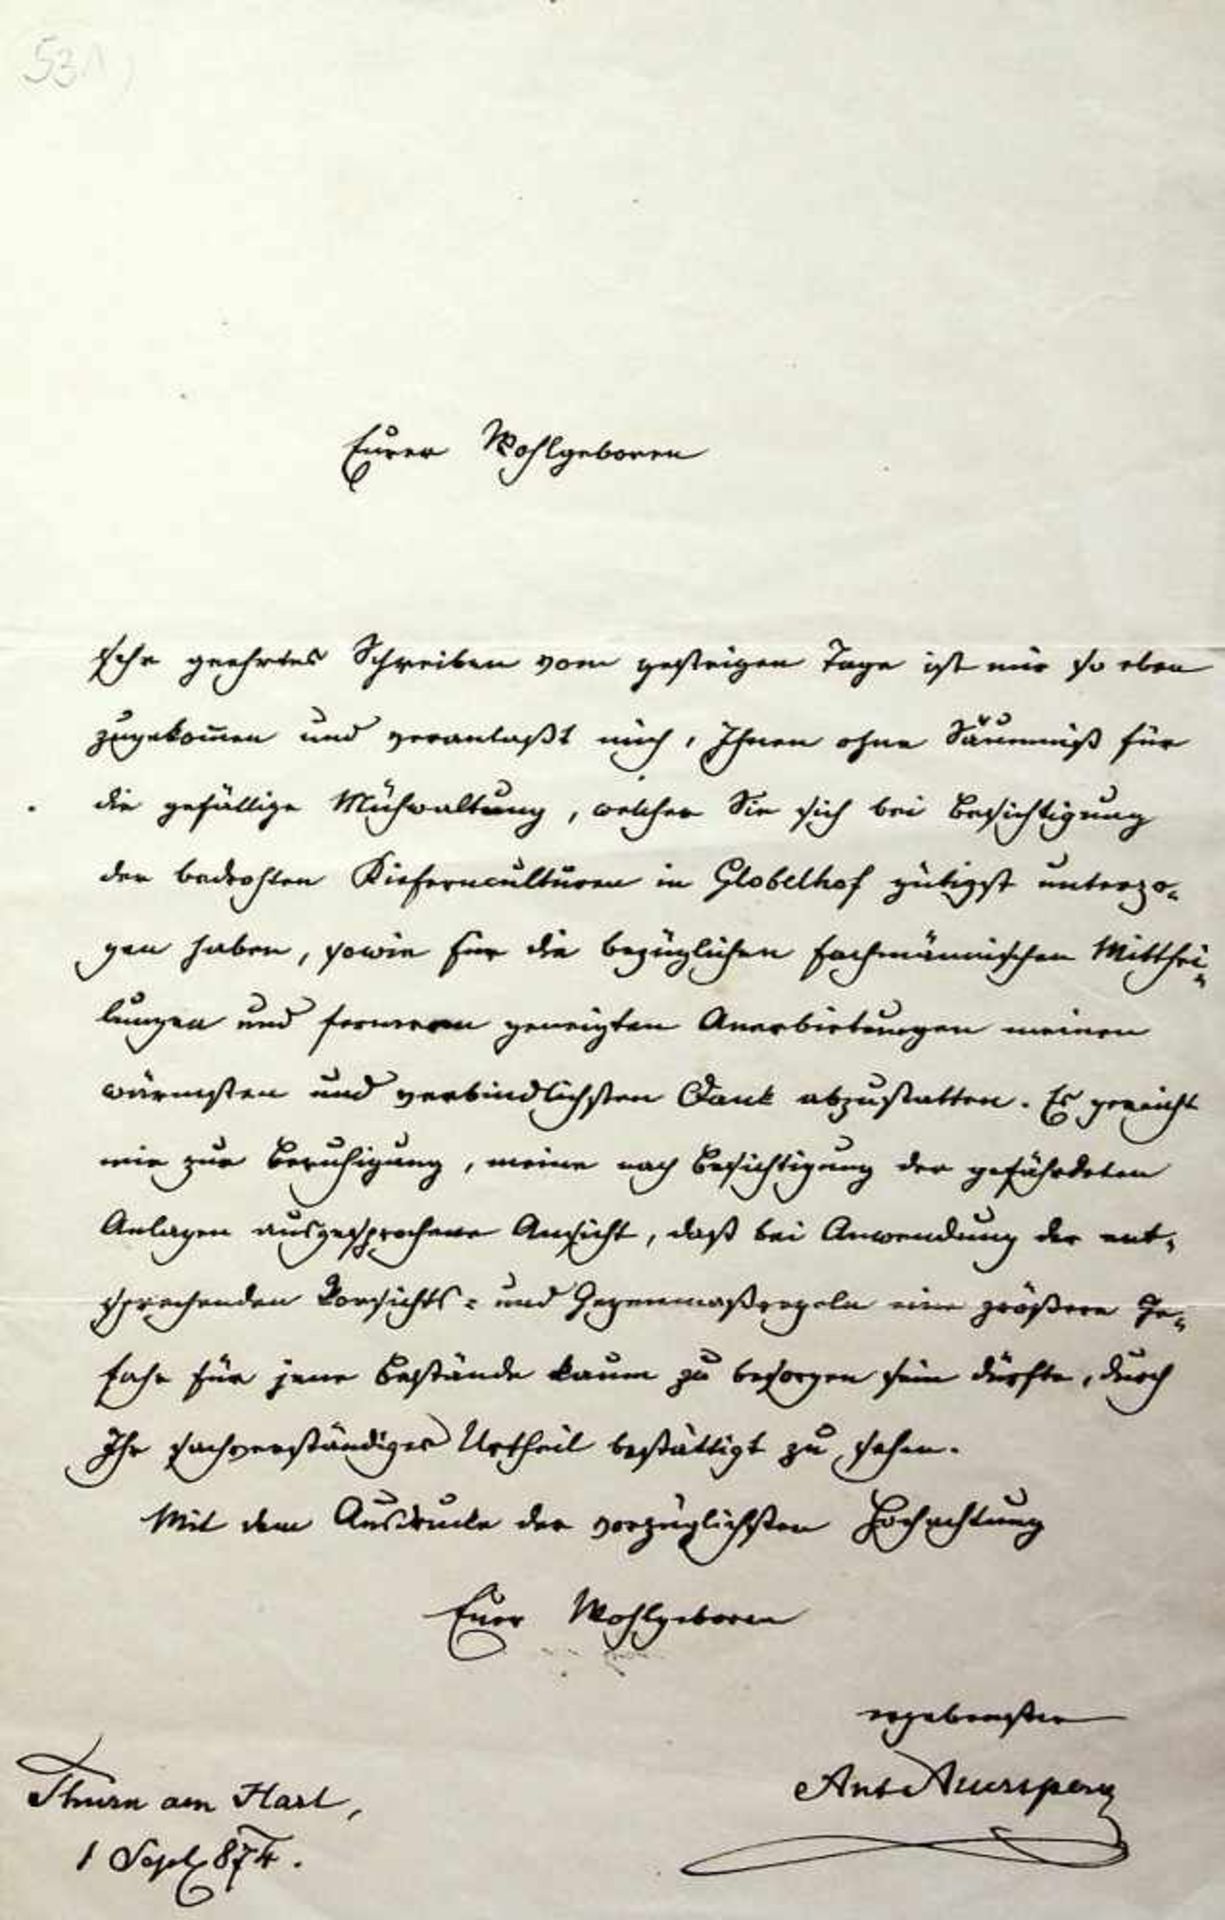 531)
Eurer Wohlgeboren
sehr geehrtes Schreiben vom gestrigen Tage ist mir so eben
zugekommen und veranlaßt mich, Ihnen ohne Säumniß für
die gefällige Mühwaltung, welcher Sie sich bei Besichtigung
der bedrohten Kiefernculturen in Globelhof gütigst unterzo-
gen haben, sowie für die bezüglichen fachmännischen Mitthei-
lungen und ferneren geneigten Anerbietungen meinen
wärmsten und verbindlichsten Dank abzustatten. Es gereicht
mir zur Beruhigung, meine nach Besichtigung der gefährdeten
Anlagen ausgesprochene Ansicht, daß bei Anwendung der ent-
sprechenden Vorsichts- und Gegenmaßregeln eine größere Ge-
fahr für jene Bestände kaum zu besorgen sein dürfte, durch
Ihr sachverständiges Urtheil bestättigt zu sehen.
Mit dem Ausdrucke der vorzüglichsten Hochachtung
Euer Wohlgeboren
ergebenster
Ant Auersperg
Thurn am Hart,
1 Sept 874.